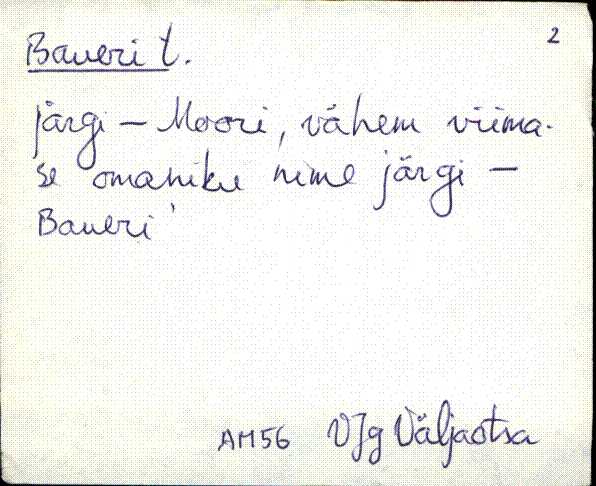 2
Baueri t.
järgi – Moori, vähem viima-
se omaniku nime järgi –
Baueri
AM56 VJg Väljaotsa